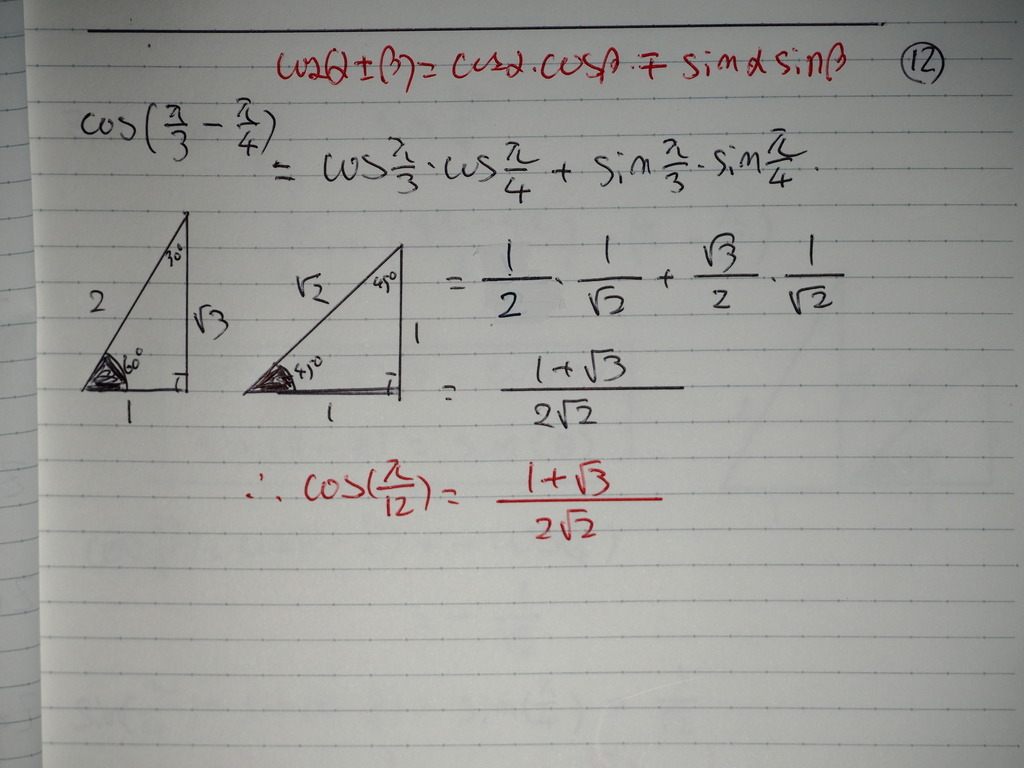 cos(α±β) = cosα·cosβ ∓ sinα sinβ ⑫
cos(π/3 − π/4)
= cos π/3 · cos π/4 + sin π/3 · sin π/4.
30° 2 √3 60° 1
45° √2 1 45° 1
= 1/2 · 1/√2 + √3/2 · 1/√2
= (1+√3)/(2√2)
∴ cos(π/12) = (1+√3)/(2√2)